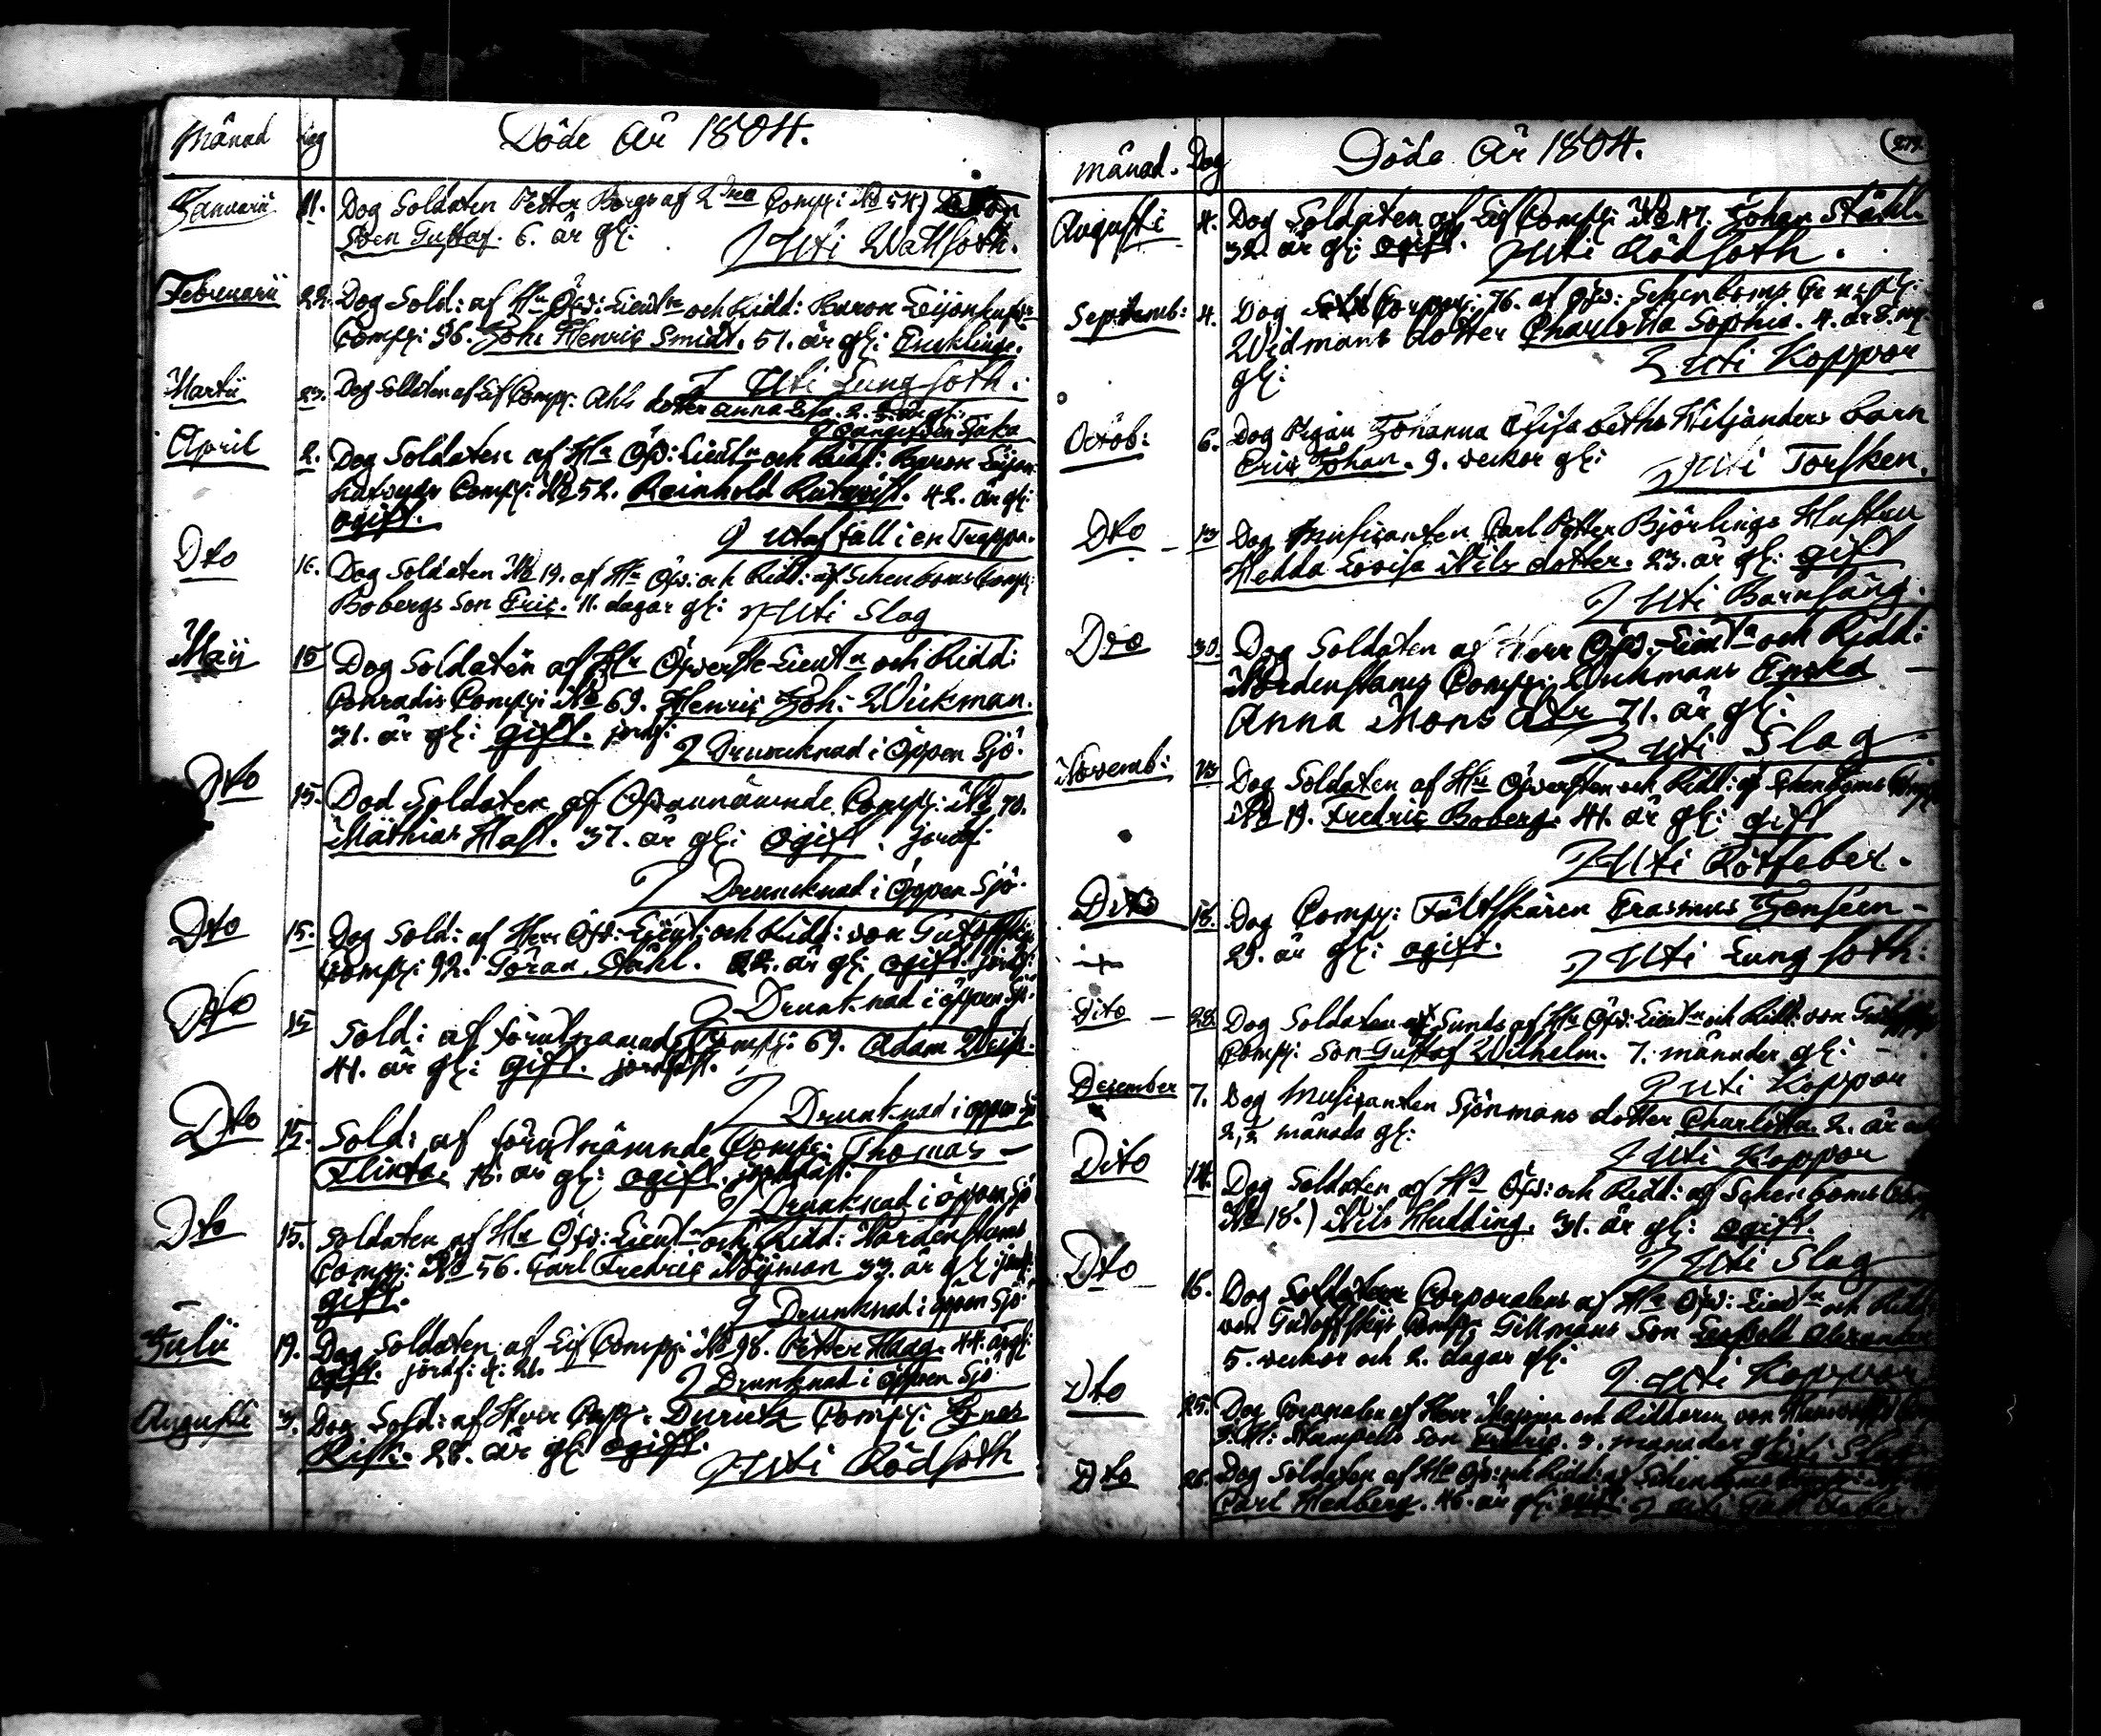 Månad Dag Döde År 1804.
Januarii 11. Dog Soldaten Petter Bergs af 2dra Comp: No 54)
Son Gustaf. 6. år gl:
Uti Wattsoth.
Februarii 22. Dog Sold: af Hr Öfv: Lieutn och Ridd: Baron Leijonhufv:
Comp: 96. Joh: Henric Smidt. 51. år gl: Encklinge.
Uti Lungsoth:
Martii 23. Dog Soldaten af Lif Comp: Ahls dotter Anna Lisa. 2.
April 2. Dog Soldaten af Hr Öfv: Lieutn och Ridd: Baron Leijon
hufvuds Comp: No 52. Reinhold Rutqvist. 42. år gl:
ogift.
utaf fall i en Trappa.
Dto 16. Dog Soldaten No 19. af Hr Öfv: och Ridd: af Schenboms Comp:
Bobergs Son Eric. 11. dagar gl:
Uti Slag
Maij 15 Dog Soldaten af Hr Öfverste Lieutn och Ridd:
Conradis Comp: No 69. Henric Joh: Wickman.
31. år gl: gift. jordf:
Druncknad i Öppen Sjö.
Dto 15. Död Soldaten af Ofvannämnde Comp: No 70.
Mathias Hall. 37. år gl: Ogift. jordf:
Druncknad i Öppen Sjö.
Dto 15. Dog Sold: af Herr Öfv: Lieut: och Ridd: von Gutoffskijs
Comp: 92. Göran Stahl. 22. år gl: ogift. jordf:
Drunknad i öppen Sjö.
Dto 15 Sold: af förutnämnd Comp: 69. Adam Weis.
41. år gl: gift. jordfäst.
Drunknad i öppen Sjö
Dto 15. Sold: af förutnämnde Comp: Thomas
Flinta. 18. år gl: ogift. jordfäst.
Drunknad i öppen Sjö
Dto 15. Soldaten af Hr Öfv: Lieutn och Ridd: Nordenstams
Comp: No 56. Carl Fredric Nÿman 33. år gl: jordf:
gift.
Drunknad i öppen Sjö
Julii 19. Dog Soldaten af Lif Comp: No 98. Petter Haag. 44. år gl:
ogift. jordf: d: 21.
Drunknad i öppen Sjö
Augusti 3. Dog Sold: af Herr Capt: Durietz Comp:
Risk. 28. år gl: ogift.
Uti Rödsoth
Månad. Dag Döde År 1804.
Augusti 4. Dog Soldaten af Lif Comp: No 47. Johan Ståhl.
32. år gl: ogift.
Uti Rödsoth.
Septemb: 4. Dog Corpor: 76. af Öfv: Schenboms Comp:
Widmans dotter Charlotta Sophia. 4. år 8. m:
gl:
Uti Koppor
Octob: 6. Dog Pigan Johanna Elisabetha Hiljanders barn
Eric Johan. 9. veckor gl:
Uti Torsken.
Dto 13 Dog Musicanten Carl Petter Björlings Hustru
Hedda Lovisa Nils dotter. 23. år gl: gift
Uti Barnsäng.
Dto 30. Dog Soldaten af Herr Öfv: Lieutn och Ridd:
Nordenstams Comp: Wickmans Encka
Anna Mons Dtr 71. år gl:
Uti Slag
Novemb: 13 Dog Soldaten af Hr Öfversten och Ridd: af Schenboms Comp:
No 19. Fredric Boberg. 41. år gl: gift
Uti Rötfeber.
Dito 18. Dog Comp: Fältskären Erasmus Jensen
29. år gl: ogift.
Uti Lungsoth:
Dito 28. Dog Soldaten Sunds af Hr Öfv: Lieutn och Ridd: von
Comp: Son Gustaf Wilhelm. 7. månader gl:
Uti Koppor
December 7. Dog Musicanten Sjönmans dotter Charlotta. 2. år
2,½ månads gl:
Uti Koppor
Dito 14. Dog Soldaten af Hr Öfv: och Ridd: af Schenboms Comp:
No 18.) Nils Hudding. 31. år gl: ogift.
Uti Slag
Dto 16. Dog Corporalens af Hr Öfv: Lieutn och Ridd:
von Gutoffskijs Comp: Gillmans Son Leopold Alexander
5. veckor och 2. dagar gl:
Uti Koppor
Dto 25. Dog Corporalen af Herr Majoren och Riddaren von
Son Fredric. 3. månader gl:
Uti Slag
Dto 26. Dog Soldaten af Hr Öfv: och Ridd: af Schenboms
Carl Hedberg. 46. år gl: